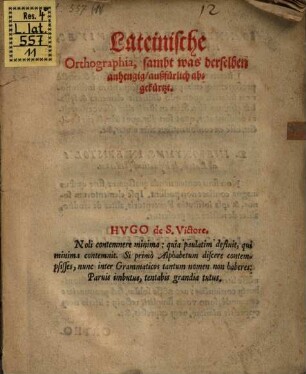 Res. 4°
L. lat.
557
11
12
Lateinische
Orthographia, sambt was derselben
anhengig/außfürlich ab-
gekürtzt.
HVGO de S. Victore.
Noli contemnere minima: quia paulatim defluit, qui
minima contemnit. Si primò Alphabetum discere contem-
psisses, nunc inter Grammaticos tantum nomen non haberes.
Paruis imbutus, tentabis grandia tutus.